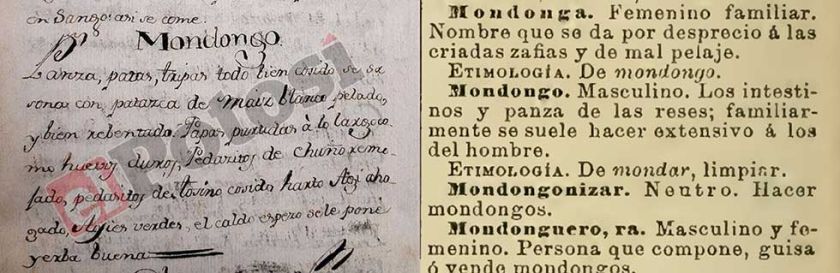 en Sango: asi se come.
Mondongo.
Panza, patas, tripas todo bien cosido se sa
sonas con patazca de Maiz blanco pelado,
y bien rebentado. Papas partidas à lo largo co
mo huevos duros, Pedasitos de chuño reme
jado, pedasitos de tosino cosido harto Agi aho
gado, Ajies verdes, el caldo espeso se le pone
yerba buena.
el Potosí
Mondonga. Femenino familiar.
Nombre que se da por desprecio á las
criadas zafias y de mal pelaje.
ETIMOLOGÍA. De mondongo.
Mondongo. Masculino. Los intesti-
nos y panza de las reses; familiar-
mente se suele hacer extensivo á los
del hombre.
ETIMOLOGÍA. De mondar, limpiar.
Mondongonizar. Neutro. Hacer
mondongos.
Mondonguero, ra. Masculino y fe-
menino. Persona que compone, guisa
ó vende mondongos.